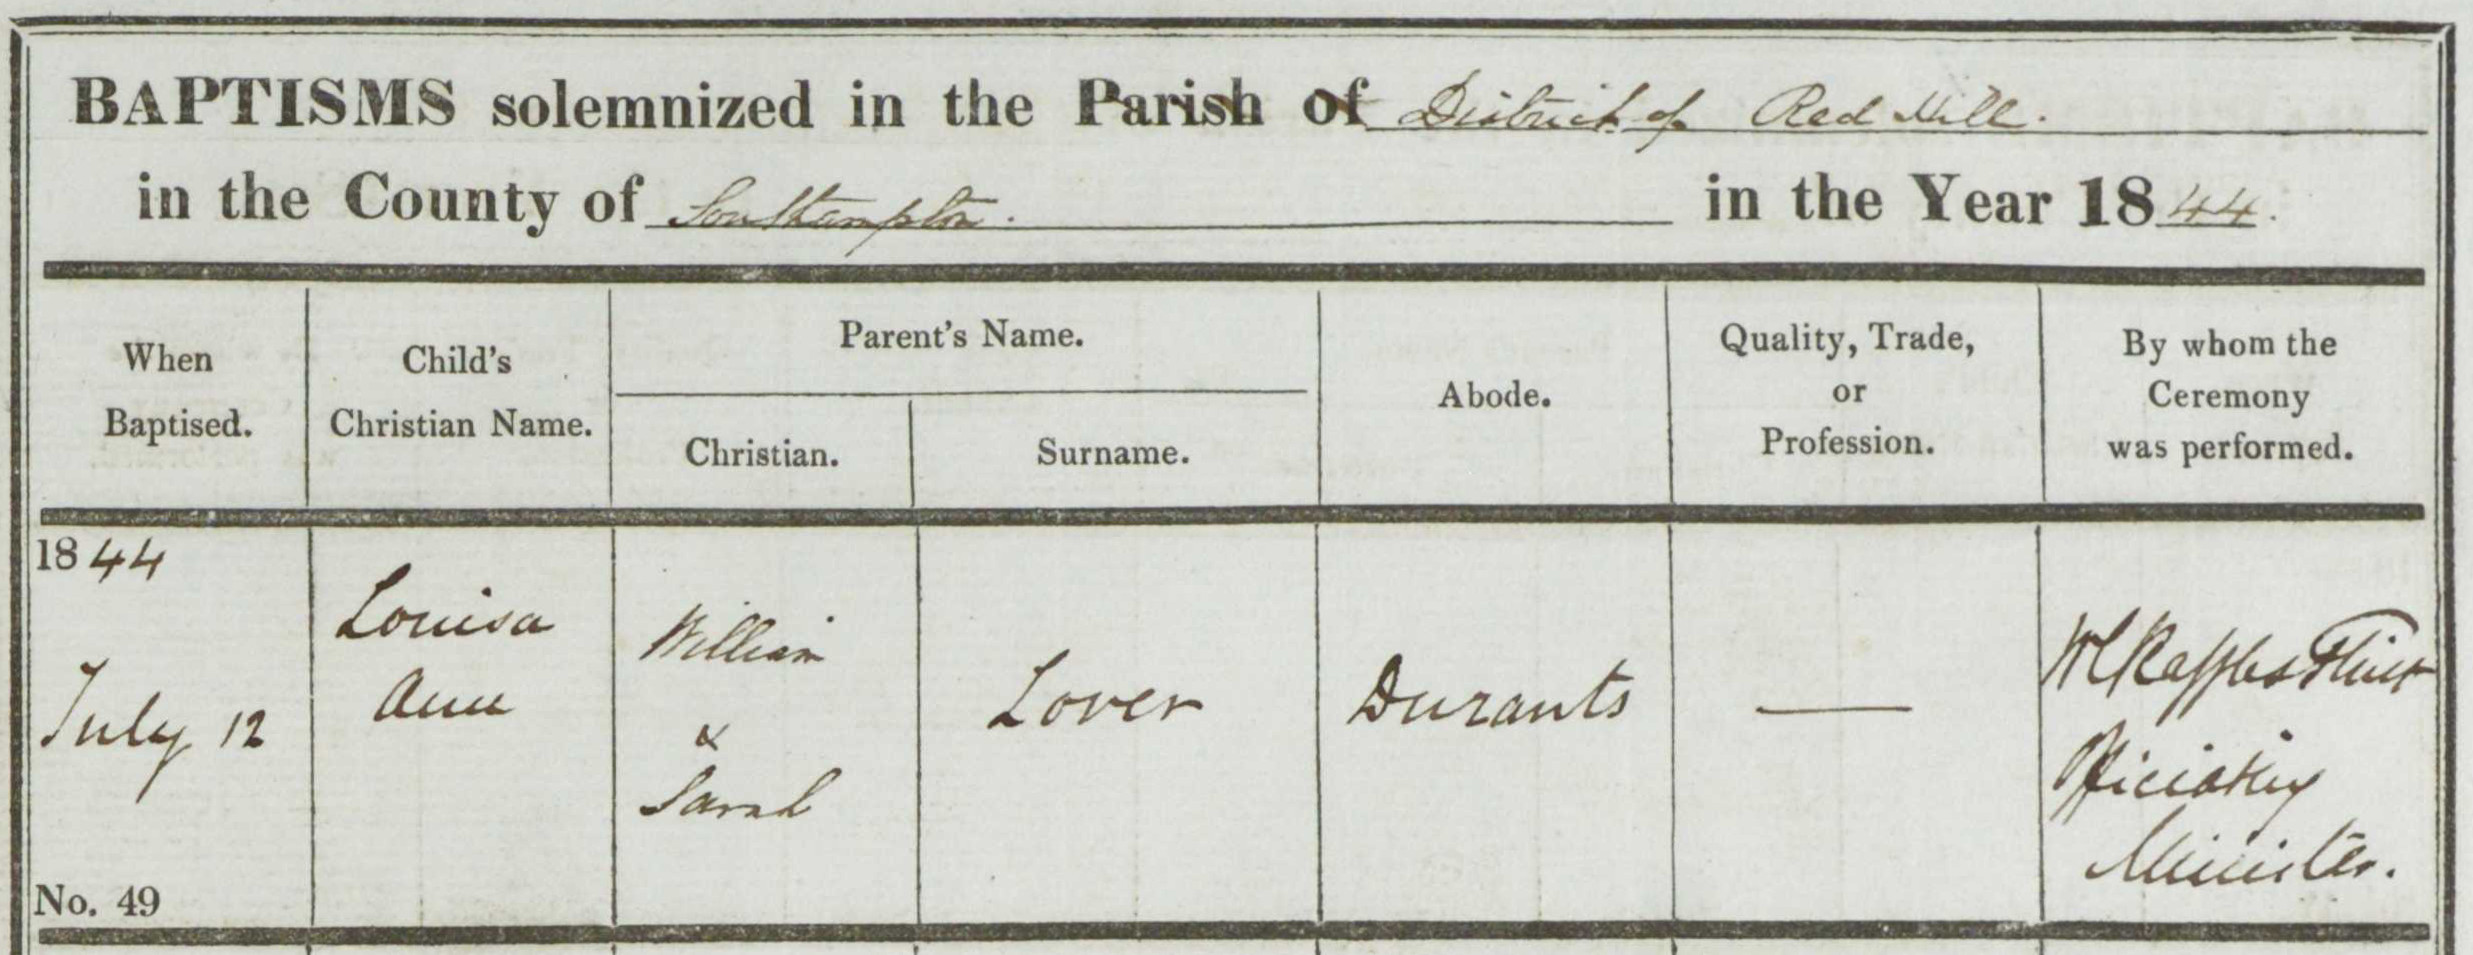 BAPTISMS solemnized in the Parish of District of Red Hill.
in the County of Southampton. in the Year 1844.
When Baptised.
Child's Christian Name.
Parent's Name.
Christian.
Surname.
Abode.
Quality, Trade, or Profession.
By whom the Ceremony was performed.
1844
July 12
No. 49
Louisa
Ann
William
&
Sarah
Lover
Durants
—
W C Raffles Flint
Officiating
Minister.